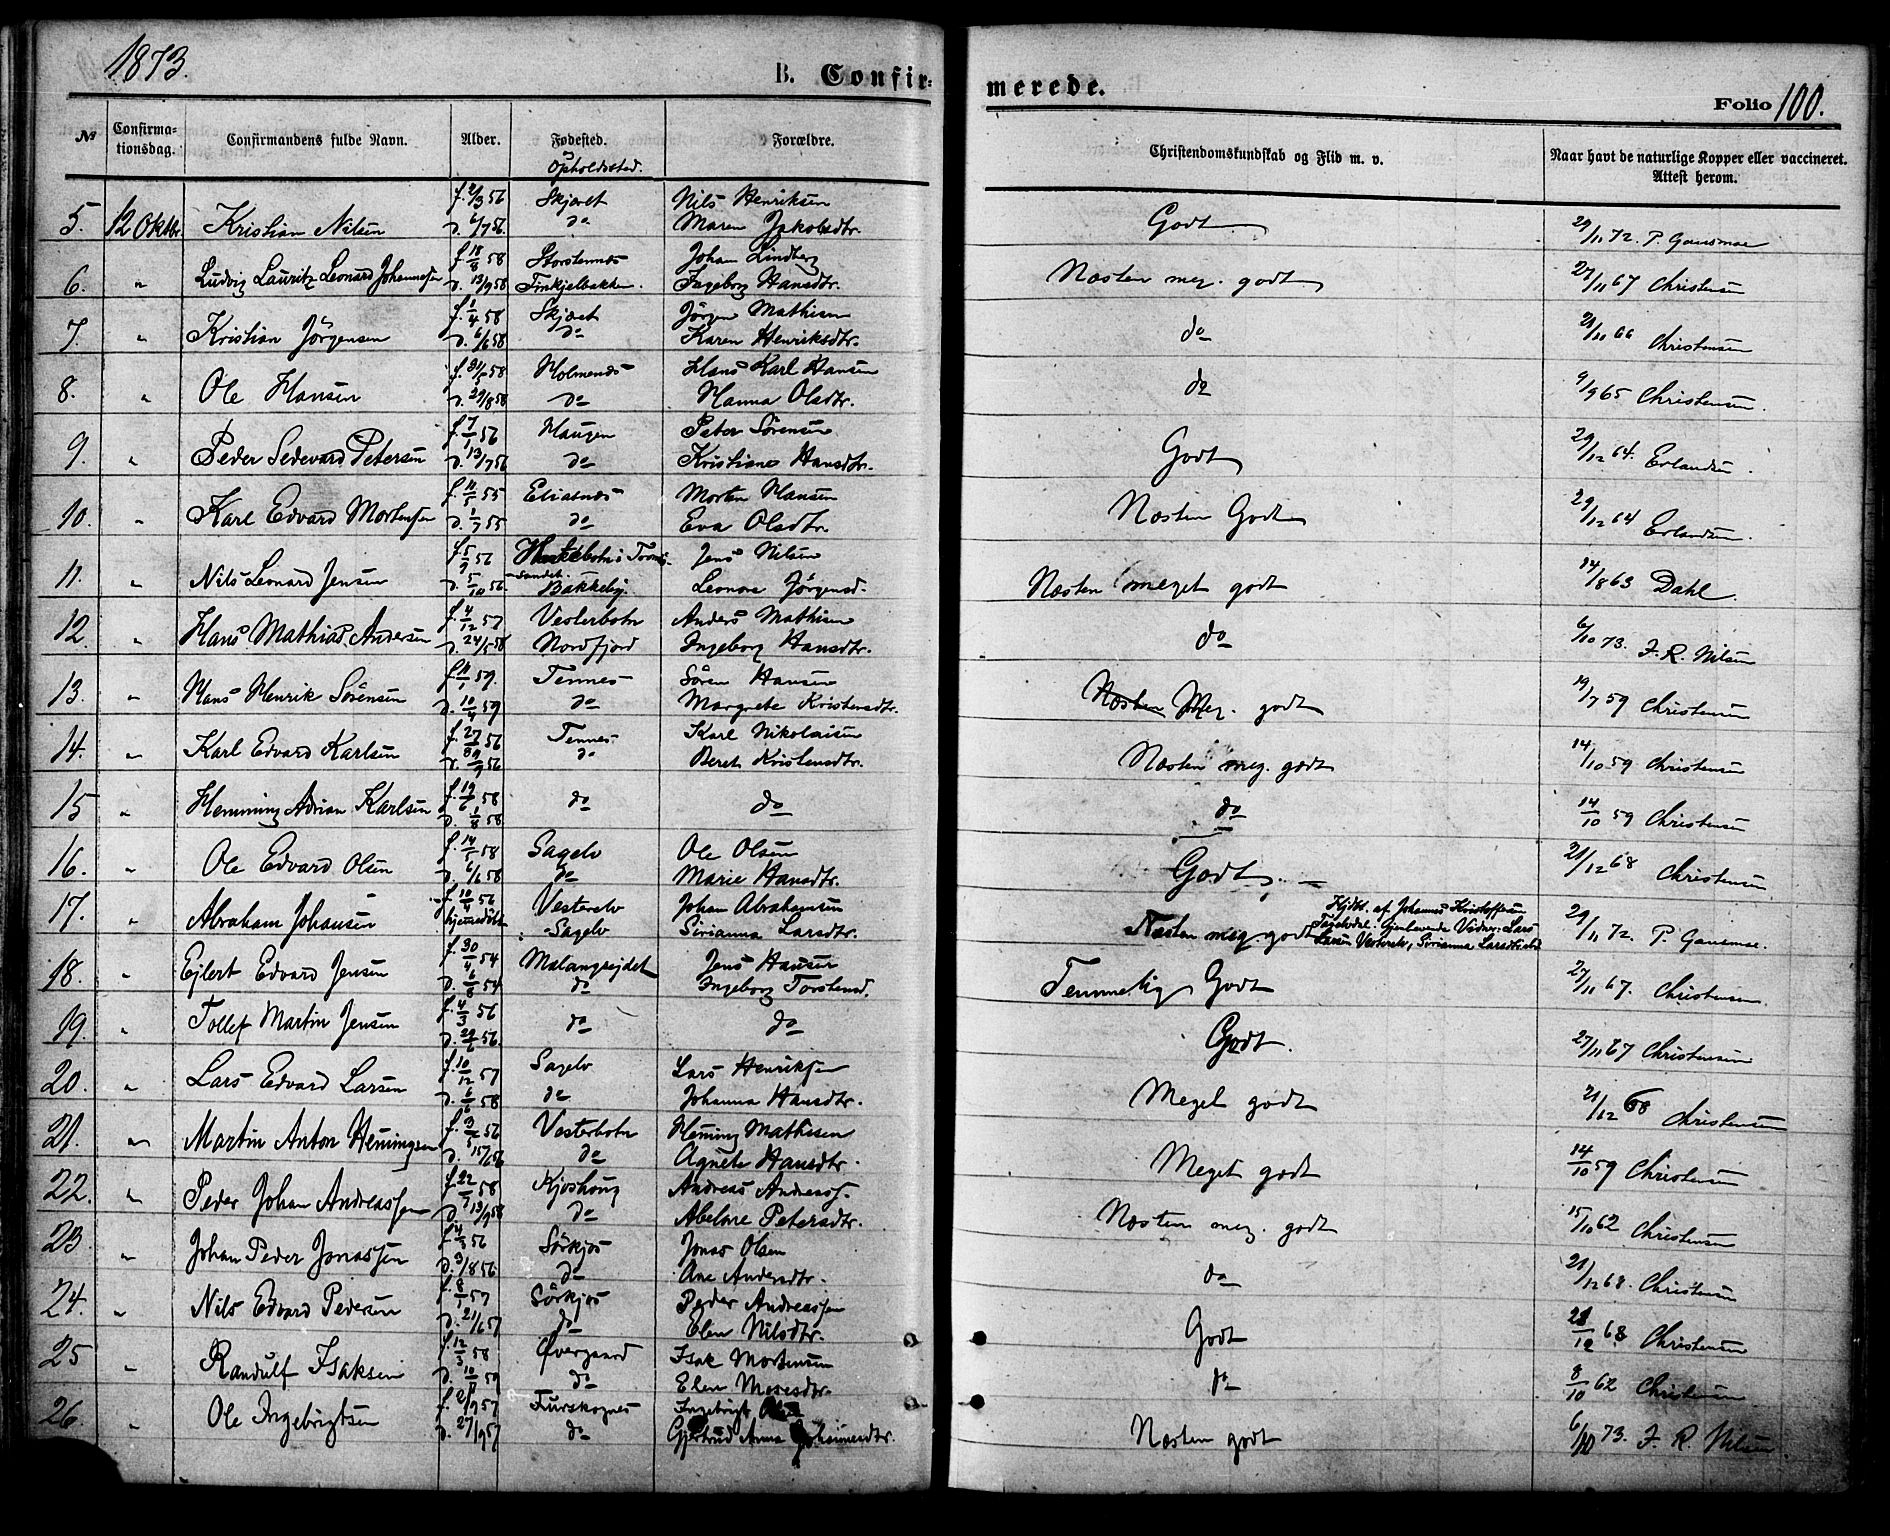 1873.
B. Confir-
merede.
Folio 100.
№ Confirma-tionsdag. Confirmandens fulde Navn. Alder. Fødested. Opholdssted. Forældre. Christendomskundskab og Flid m. v. Naar havt de naturlige Kopper eller vaccineret. Attest herom.
f. 2/3 56 Skjæret Nils Henriksen
5. 12 Oktbr. Kristian Nilsen d. 6/7 56. do Maren Jakobsdtr. Godt 29/11 72. P. Gansmoe
f. 18/8 58 Storstennes Johan Lindberg
6. " Ludvig Lauritz Leonard Johannesen d. 13/9 58 Finkjelbakken. Ingeborg Hansdtr. Næsten meg. godt 27/11 67 Christensen
f. 1/4 58 Skjæret Jörgen Mathisen
7. " Kristian Jörgensen d. 6/6 58 do Karen Henriksdtr. do 21/11 66 Christensen
f. 31/5 58 Holmenes Hans Karl Hansen
8. " Ole Hansen d. 29/8 58 do Hanna Olsdtr. do 9/9 65 Christensen.
f. 7/1 56 Haugen Peter Sörensen
9. " Peder Sedevard Petersen d. 13/7 56 do Kristiane Hansdtr. Godt 29/12 64. Erlandsen.
f. 11/5 55 Eliasnes Morten Hansen
10. " Karl Edvard Mortensen d. 1/7 55 do Eva Olsdtr Næsten Godt 29/12 64 Erlandsen.
f. 5/9 56 Jens Nilsen
11. " Nils Leonard Jensen d. 5/10 56. Bakkeby. Leonora Jörgensd. Næsten meget godt 14/8 63 Dahl.
f. 4/12 57 Vesterbotn Anders Mathisen
12 " Hans Mathias Andersen d. 24/5 58 Nordfjord Ingeborg Hansdtr. do 6/10 73. F. R. Nilsen
f. 11/1 59. Tennes Sören Hansen
13. " Hans Henrik Sörensen d. 10/4 59 do Margrete Kristensdtr. Næsten Meg. godt 19/7 59 Christensen
f. 27/8 56 Tennes Karl Nikolaisen
14. " Karl Edvard Karlsen 56 do Beret Kristensdtr. Næsten meg. godt 14/10 59 Christensen
15 " Hemming Adrian Karlsen f. 19/6 58 d. 1/8 58 do do do 14/10 59 Christensen
f. 14/5 58 Sagelv Ole Olsen
16. " Ole Edvard Olsen d. 6/6 58 do Marie Hansdtr. Godt. 21/12 68 Christensen
f. 10/4 56 Vesterelv Johan Abrahamsen
17. " Abraham Johansen hjemedöbt Sagelv Sirianna Larsdtr. Næsten meg. godt Hjdbt. af Johannes Kristoffersen
29/11 72. P. Gansmoe.
f. 30/4 54 Malangseidet Jens Hansen
18. " Ejlert Edvard Jensen d. 6/8 54 do Ingeborg Torstensd. Temmelig Godt 27/11 67. Christensen.
19. " Tollef Martin Jensen f. 4/3 56 d. 29/6 56. do do Godt. 27/11 67 Christensen
f. 10/12 57 Sagelv Lars Henriksen
20. " Lars Edvard Larsen d. 6/6 58 do Johanna Hansdtr. Meget godt 21/12 68 Christensen
f. 3/5 56 Vesterbotn Heming Mathisen
21. " Martin Anton Hemingsen d. 15/6 56 do Agnete Hansdtr. Meget godt 14/10 59 Christensen
f. 22/7 58 Kjoshoug Andreas Andreass.
22. " Peder Johan Andreassen d. 13/9 58 do Abelone Petersdtr. Næsten meg. godt 15/10 62 Christensen
56 Sörkjos Jonas Olsen
23. " Johan Peder Jonassen d. 3/8 56. do Ane Andersdtr. do 21/12 68. Christensen
f. 8/1 57 Sörkjos Peder Andreassen
24. " Nils Edvard Pedersen d. 21/6 57 do Elen Nilsdtr. Godt 21/12 68 Christensen
f. 12/3 58 Øvergaard Isak Mortensen
25 " Randulf Isaksen do Elen Mosesdtr. do 8/10 62 Christensen
57 Furskognes Ingebrigt Olsen
26. " Ole Ingebrigtsen d. 27/9 57 do Gjertrud Anna Johannesdtr. Næsten godt 6/10 73. F. R. Nilsen